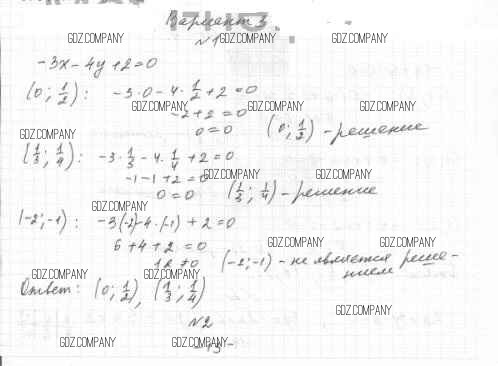 Вариант 3
GDZ.COMPANY GDZ.COMPANY GDZ.COMPANY
№1
-3x-4y+2=0
GDZ.COMPANY GDZ.COMPANY GDZ.COMPANY
(0; 1/2): -3·0-4·1/2+2=0
GDZ.COMPANY GDZ.COMPANY GDZ.COMPANY
-2+2=0
0=0 (0; 1/2) - решение
GDZ.COMPANY
(1/3; 1/4): -3·1/3-4·1/4+2=0
GDZ.COMPANY GDZ.COMPANY
-1-1+2=0
0=0 (1/3; 1/4) - решение
GDZ.COMPANY
(-2;-1): -3(-2)-4·(-1)+2=0
GDZ.COMPANY GDZ.COMPANY
6+4+2=0
12≠0 (-2;-1) - не является реше-
нием
GDZ.COMPANY GDZ.COMPANY
Ответ: (0; 1/2), (1/3; 1/4)
GDZ.COMPANY
№2
GDZ.COMPANY GDZ.COMPANY